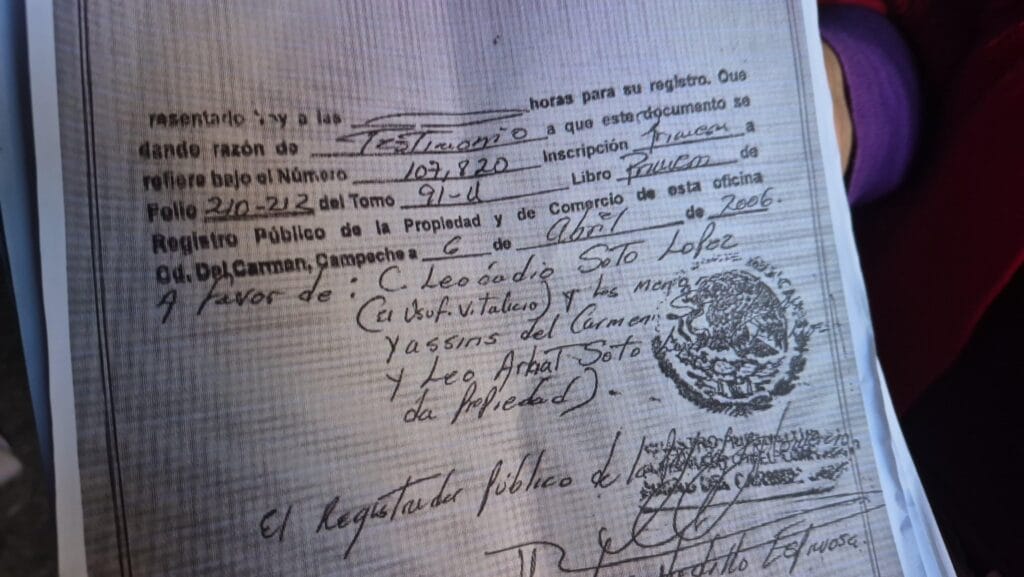 resentado hoy a las horas para su registro. Que
dando razón de Testimonio a que este documento se
refiere bajo el Número 107,820 Inscripción Primera a
Folio 210-212 del Tomo 91-U Libro Primero de
Registro Público de la Propiedad y de Comercio de esta oficina
Cd. Del Carmen, Campeche a 6 de abril de 2006.
A favor de: C. Leocadio Soto Lopez
(el Usuf. Vitalicio) y los menores
Yassins del Carmen
y Leo Arbat Soto
da Propiedad).-
El Registrador Público de la
Espinosa